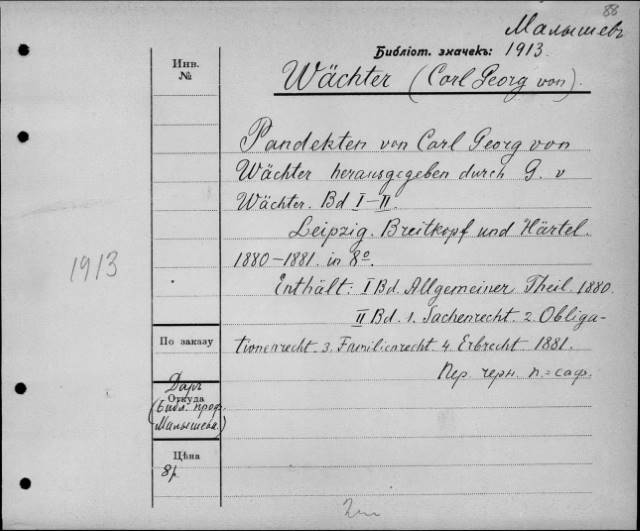 88
Малышевъ
Библіот. значекъ: 1913.
Инв.
№
Wächter (Carl Georg von).
Pandekten von Carl Georg von
Wächter herausgegeben durch G. v
Wächter. Bd I–II.
Leipzig. Breitkopf und Härtel.
1880–1881. in 8º.
1913
Enthält: I Bd. Allgemeiner Theil. 1880.
II Bd. 1. Sachenrecht. 2. Obliga-
tionenrecht. 3. Familienrecht 4. Erbrecht. 1881.
Пер. черн. п.=саф.
По заказу
Даръ
Откуда
(Библ. проф.
Малышева.)
Цѣна
8р.